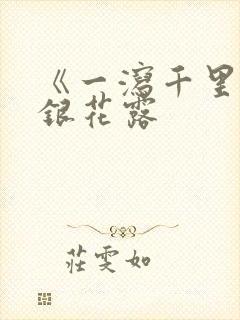 《一瀉千里
銀花露
莊雯如